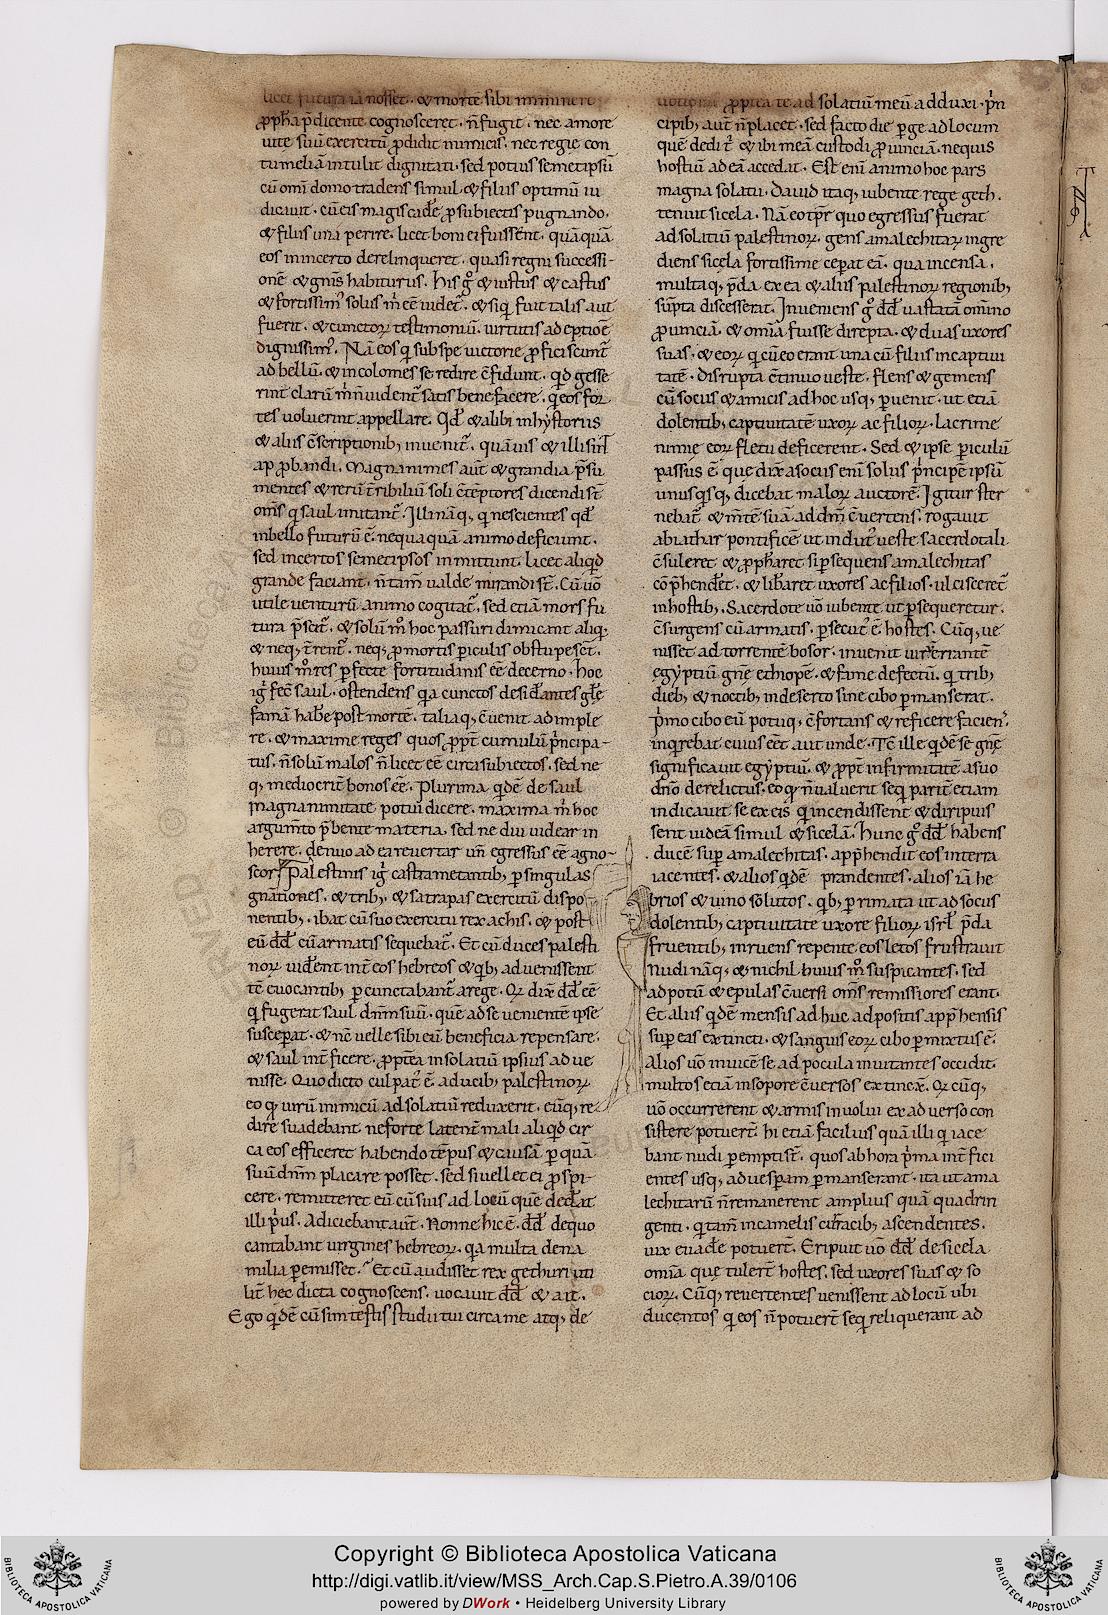 licet futura iā nosset. & mortē sibi imminere
ꝓph̄a p̄dicente cognosceret. n̄ fugit. nec amore
uite suū exercitū ꝓdidit inimicis. nec regie con
tumeliā intulit dignitati. sed potius semetipsū
cū om̄i domo tradens simul & filiis optimū iu
dicauit. cū eis magis cad̄e ꝓ subiectis pugnando.
& filiis una perire. licet boni ei fuissent. quā quā
eos in incerto derelinqueret. quasi regni successi-
onē & gn̄is habituruſ. His g͛ & iustus & castus
& fortissim͛ solus m͛ eē uidet͛. & siq͛ fuit talis aut
fuerit. & cunctoꝝ testimoniū. uirtutis adeptioē
dignissim͛. Nā eos q͛ sub spe uictorie ꝓficiscunt͛
ad bellū. & incolomes se redire c̄fidunt. qd̄ gesse
rint clarū m͛ n̄ uident͛ satis bene facere. q͛ eos for
tes uoluerint appellare. Qd̄ & alibi in hystoriis
& aliis c̄scriptionib; inuenit͛. quāuis & illi sint
ap ꝓbandi. Magnanimes aut̄ & grandia p̄su
mentes & rerū t̄ribiliū soli c̄tēptores dicendi st̄
om̄s q͛ saul imitant͛. Illi nāq; qui nescientes qd̄
in bello futurū ē. nequaquā animo deficiunt.
sed incertos semetipsos inmittunt. licet aliqd̄
grande faciant. n̄ tam̄ ualde mirandi st̄. Cū uō
utile uenturū animo cogitat͛. sed etiā mors fu
tura p̄scit͛. & solū m͛ hoc passuri dimicant aliq͛
& neq; t̄rent͛. neq; ꝓ mortis ꝑiculis obstupesct̄.
huius m͛ res ꝑfecte fortitudinis eē decerno. hoc
ig͛ fec̄ saul. ostendens q͛a cunctos desid̄antes gl̄e
famā hab̄e post mortē. taliaq; c̄uenit adimple
re. & maxime reges quos ꝓpt̄ cumulū p͛ncipa-
tus. n̄ solū malos n̄ licet eē circa subiectos. sed ne
q; mediocrit̄ bonos eē. Plurima q͛dē de saul
magnanimitate potui dicere. maxima m͛ hoc
argum̄to p̄bente materia. sed ne diu uidear in
herere. denuo ad ea reuertar un̄ egressus eē agno-
scor. Palestinis ig͛ castra metantib; ꝑ singulas
gnationes. & trib; & satrapas exercitū dispo
nentib; ibat cū suo exercitu rex achis. & post
eū dd̄ cū armatis sequebat͛. Et cū duces palesti
noꝝ uid̄ent int̄ eos hebreos & q͛b; aduenissent
tē euocantib; ꝑcunctabant͛ a rege. Qꝝ dix̄ dd̄ eē
q͛ fugerat saul dn̄m suū. quē ad se uenientē ipse
suscep̄at. & nc̄ uelle sibi eū beneficia repensare.
& saul int̄ficere. ꝓpt̄ea in solatiū ipsius adue
nisse. Quo dicto culpat͛ ē. aducib; palestinoꝝ
eo q͛ uirū inimicū ad solatiū reduxerit. eūq; re
dire suadebant ne forte latent̄ mali aliqd̄ cir
ca eos efficeret habendo tēpus & causā ꝑ quā
suū dn̄m placare posset. sed si uellet ei ꝓspi-
cere. remitteret eū cū suis ad locū quē ded̄at
illi p͛us. Adiciebant aut̄. Nonne hic ē. dd̄ de quo
cantabant uirgines hebreoꝝ. q͛a multa dena
milia ꝑemisset. Et cū audisset rex geth uiri uti
lit̄ hec dicta cognoscens. uocauit dd̄ & ait.
Ego q͛dē cū sim testis studii tui circa me atq; de
uotionis ꝓpt̄ea te ad solatiū meū adduxi. p͛n
cipib; aut̄ n̄ placet. sed facto die ꝑge ad locum
quē dedi t͛. & ibi meā custodi ꝓuinciā. nequis
hostiū ad eā accedat. Est eni animo hoc pars
magna solatii. Dauid itaq; iubente rege geth.
tenuit sicela. Nā eo tp̄r quo egressus fuerat
ad solatiū palestinoꝝ. gens amalechitaꝝ ingre
diens sicela fortissime cep̄at eā. qua incensa.
multaq; p̄da ex ea & aliis palestinoꝝ regionib;
sūpta discesserat. Inueniens g͛ dd̄ uastatā om̄ino
ꝓuinciā. & om̄ia fuisse direpta. & duas uxores
suas. & eoꝝ q͛ cū eo erant una cū filiis in captiui
tatē. disrupta c̄tinuo ueste. flens & gemens
cū sociis & amicis ad hoc usq; ꝑuenit. ut etiā
dolentib; captiuitatē uxoꝝ ac filioꝝ. lacrime
nimie eoꝝ fletu deficerent. Sed & ipse ꝑiculū
passus ē. que dix̄ a sociis eni solus p͛ncipē ipsū
unusq͛sq; dicebat maloꝝ auctorē. Igitur ster
nebat͛ & m̄tē suā ad dm̄ c̄uertens. rogauit
abiathar pontificē ut indut͛ ueste sacerdotali
c̄suleret & ꝓph̄aret si ꝑsequens amalechitas
cōp̄hend̄et. & lib̄aret uxores ac filios. ulcisceret͛
in hostib; Sacerdote uō iubente ut ꝑsequeretur.
c̄surgens cū armatis. ꝑsecut͛ ē hostes. Cūq; ue
nisset ad torrentē bosor. inuenit uirū errantē
egyptiū gn̄e ethiopē. & fame defectū. q͛ trib;
dieb; & noctib; in deserto sine cibo ꝑmanserat.
p͛mo cibo eū potuq; c̄fortans & reficere facien͛.
inq͛rebat cuius eēt aut unde. Tē ille q͛dē se gn̄e
significauit egyptiū. & ꝓpt̄ infirmitatē a suo
dn̄o derelictus. eo q͛ n̄ ualuerit seq͛ parit̄ etiam
indicauit se ex eis q͛ incendissent & diripuis
sent uideā simul & sicelā. Hunc g͛ dd̄ habens
ducē suꝑ amalechitas. app̄hendit eos in terra
iacentes. & alios q͛dē prandentes. alios iā he
brios & uino solutos. q͛b; ꝑ rimata ut ad socus
dolentib; captiuitate uxore filioꝝ isrl̄ p̄da
fruentib; irruens repente eos letos frustrauit
Nudi nāq; & nichil huius m͛ suspicantes. sed
ad potū & epulas c̄uersi om̄s remissiores erant.
Et alius q͛dē mensis adhuc adpositis app̄hensis
suꝑ eas extincti. & sanguis eoꝝ cibo ꝑmixtus ē.
Alios uō inuicē se ad pocula inuitantes occidit.
multos etiā in sopore c̄uersos extinc̄x̄. Qꝝ cūq;
uō occurrerent & armis inuoluti ex aduerso con
sistere potuert̄. hi etiā facilius quā illi q͛ iace
bant nudi ꝑempti st̄. quos ab hora p͛ma int̄fici
entes usq; ad uesꝑam ꝑmanserant. ita ut ama
lechitarū n̄ remanerent amplius quā quadrin
genti. q͛ tam̄ in camelis cur̄racib; ascendentes.
uix euad̄e potuert̄. Eripuit uō dd̄ de sicela
om̄ia que tulert̄ hostes. sed uxores suas & so
cioꝝ. Cūq; reuertentes uenissent ad locū ubi
ducentos q͛ eos n̄ potuert̄ seq͛ reliquerant ad
Copyright © Biblioteca Apostolica Vaticana
http://digi.vatlib.it/view/MSS_Arch.Cap.S.Pietro.A.39/0106
powered by DWork • Heidelberg University Library